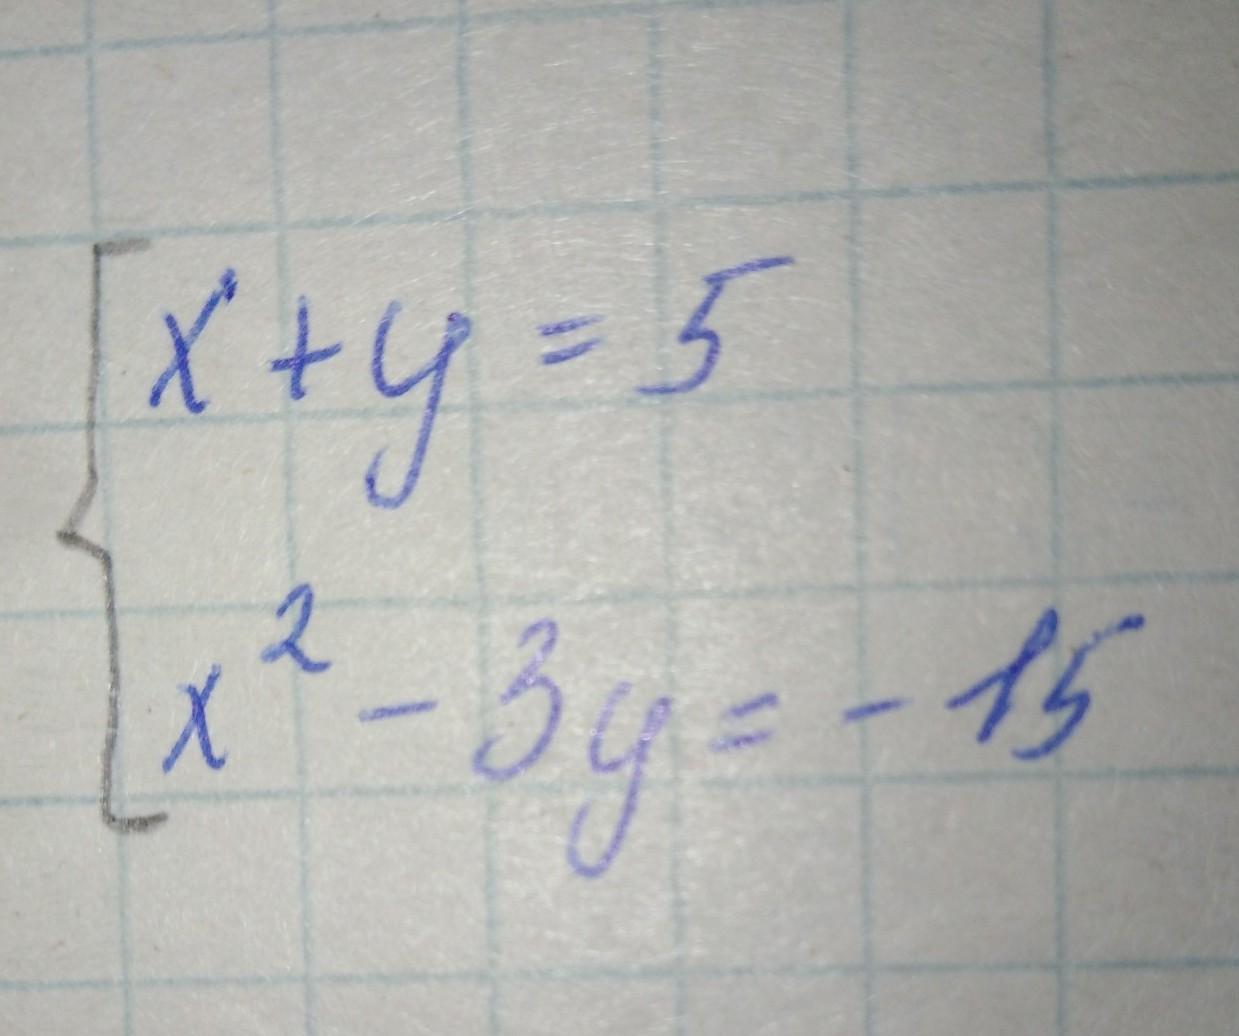 x + y = 5
x² - 3y = -15